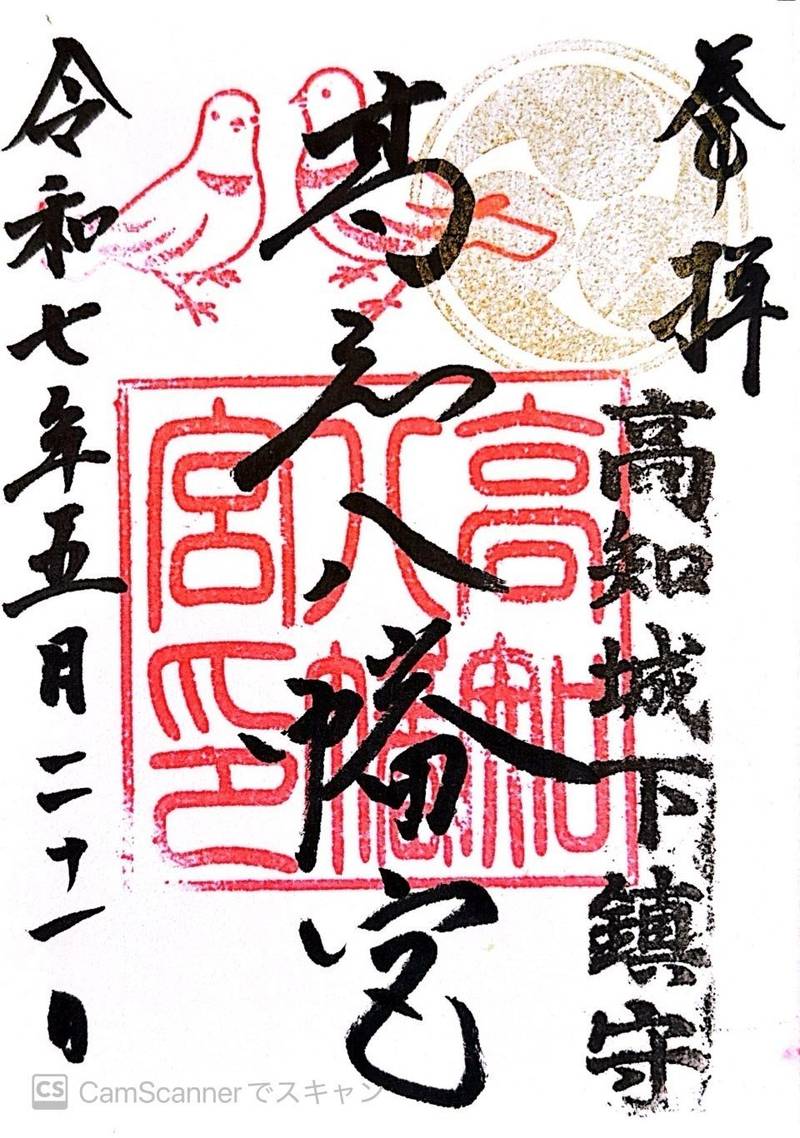 奉拝
高知城下鎮守
高知八幡宮
高知八幡宮印
令和七年五月二十一日
CS CamScannerでスキャン